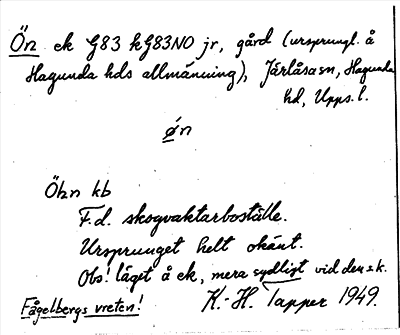 Ön ek G83 kG83NO jr, gård (ursprungl. å
Hagunda hds allmänning), Järlåsa sn, Hagunda
hd, Upps. l.
øn
Öhn kb
F.d. skogvaktarboställe.
Ursprunget helt okänt.
Obs! läget å ek, mera sydligt vid den s.k.
Fågelbergs vreten! K.-H. Tapper 1949.